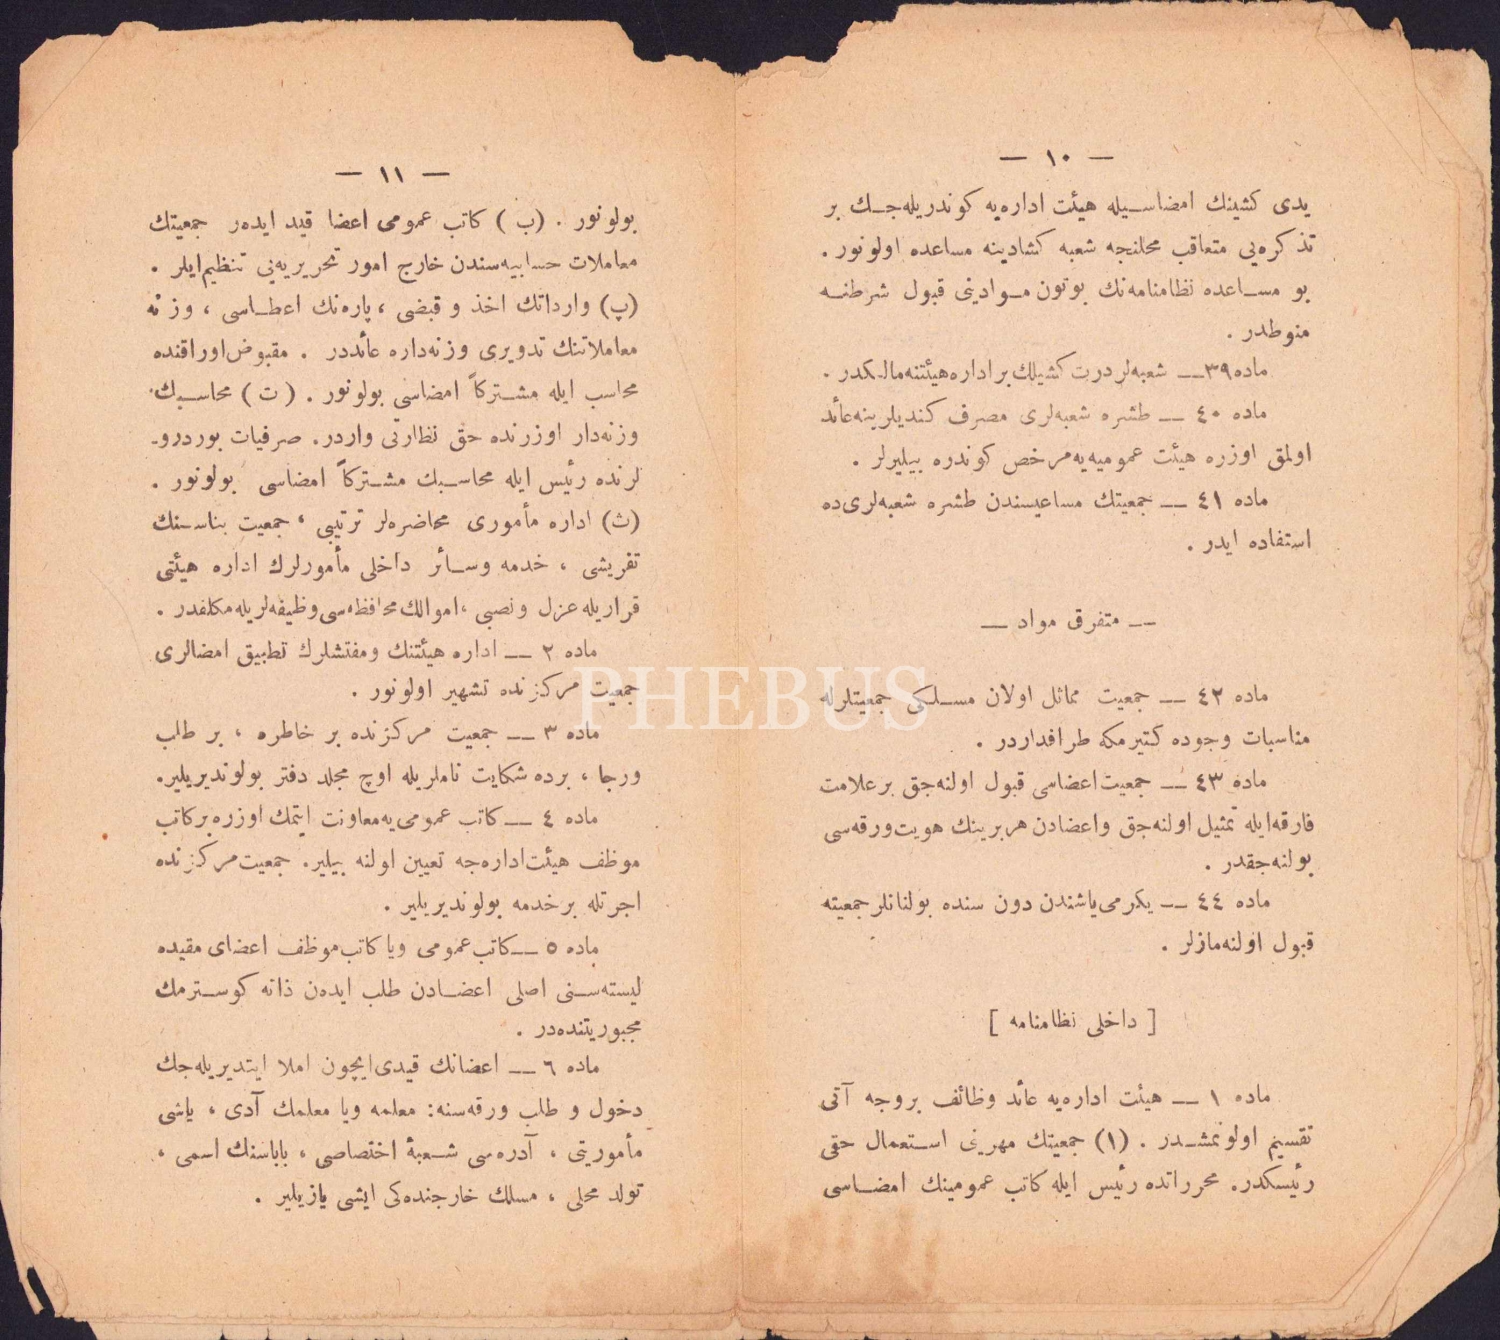 — ١٠ —
يدى كشينك امضاسيله هيئت اداره‌يه كوندريله‌جك بر
تذكره‌يى متعاقب محلنجه شعبه كشادينه مساعده اولونور .
بو مساعده نظامنامه‌نك بوتون موادينى قبول شرطنه
منوطدر .
ماده ٣٩ — شعبه‌لر درت كشيلك بر اداره هيئتنه مالكدر .
ماده ٤٠ — طشره شعبه‌لرى مصرف كنديلرينه عائد
اولمق اوزره هيئت عموميه‌يه مرخص كوندره بيليرلر .
ماده ٤١ — جمعيتك مساعيسندن طشره شعبه‌لرى ده
استفاده ايدر .
— متفرق مواد —
ماده ٤٢ — جمعيت مماثل اولان مسلكى جمعيتلرله
مناسبات وجوده كتيرمكه طرافداردر .
ماده ٤٣ — جمعيت اعضاسى قبول اولنه‌جق بر علامت
فارقه ايله تمثيل اولنه‌جق واعضادن هر برينك هويت ورقه‌سى
بولنه‌جقدر .
ماده ٤٤ — يكرمى ياشندن دون سنده بولنانلر جمعيته
قبول اولنه‌مازلر .
[ داخلى نظامنامه ]
ماده ١ — هيئت اداره‌يه عائد وظائف بروجه آتى
تقسيم اولونمشدر . (١) جمعيتك مهرينى استعمال حقى
رئيسكدر. محرراتده رئيس ايله كاتب عمومينك امضاسى
— ١١ —
بولونور . (ب) كاتب عمومى اعضا قيد ايده‌ر جمعيتك
معاملات حسابيه‌سندن خارج امور تحريريه‌يى تنظيم ايلر .
(پ) وارداتك اخذ و قبضى ، پاره‌نك اعطاسى ، وزنه
معاملاتنك تدويرى وزنه‌داره عائددر . مقبوض اوراقنده
محاسب ايله مشتركاً امضاسى بولونور . (ت) محاسبك
وزنه‌دار اوزرنده حق نظارتى واردر. صرفيات بوردرو-
لرنده رئيس ايله محاسبك مشتركاً امضاسى بولونور .
(ث) اداره مأمورى محاضره‌لر ترتيبى ، جمعيت بناسنك
تفريشى ، خدمه وسائر داخلى مأمورلرك اداره هيئتى
قراريله عزل ونصبى ، اموالك محافظه‌سى وظيفه‌لريله مكلفدر .
ماده ٢ — اداره هيئتنك ومفتشلرك تطبيق امضالرى
جمعيت مركزنده تشهير اولونور .
ماده ٣ — جمعيت مركزنده بر خاطره ، بر طلب
ورجا ، برده شكايت ناملريله اوچ مجلد دفتر بولونديريلير.
ماده ٤ — كاتب عمومى‌يه معاونت ايتمك اوزره بر كاتب
موظف هيئت اداره‌جه تعيين اولنه بيلير. جمعيت مركزنده
اجرتله بر خدمه بولونديريلير .
ماده ٥ — كاتب عمومى ويا كاتب موظف اعضاى مقيده
ليسته‌سنى اصلى اعضادن طلب ايده‌ن ذاته كوسترمك
مجبوريتنده‌در .
ماده ٦ — اعضانك قيدى ايچون املا ايتديريله‌جك
دخول و طلب ورقه‌سنه: معلمه ويا معلمك آدى ، ياشى
مأموريتى ، آدره‌سى شعبهٔ اختصاصى ، باباسنك اسمى ،
تولد محلى ، مسلك خارجنده‌كى ايشى يازيلير .
PHEBUS